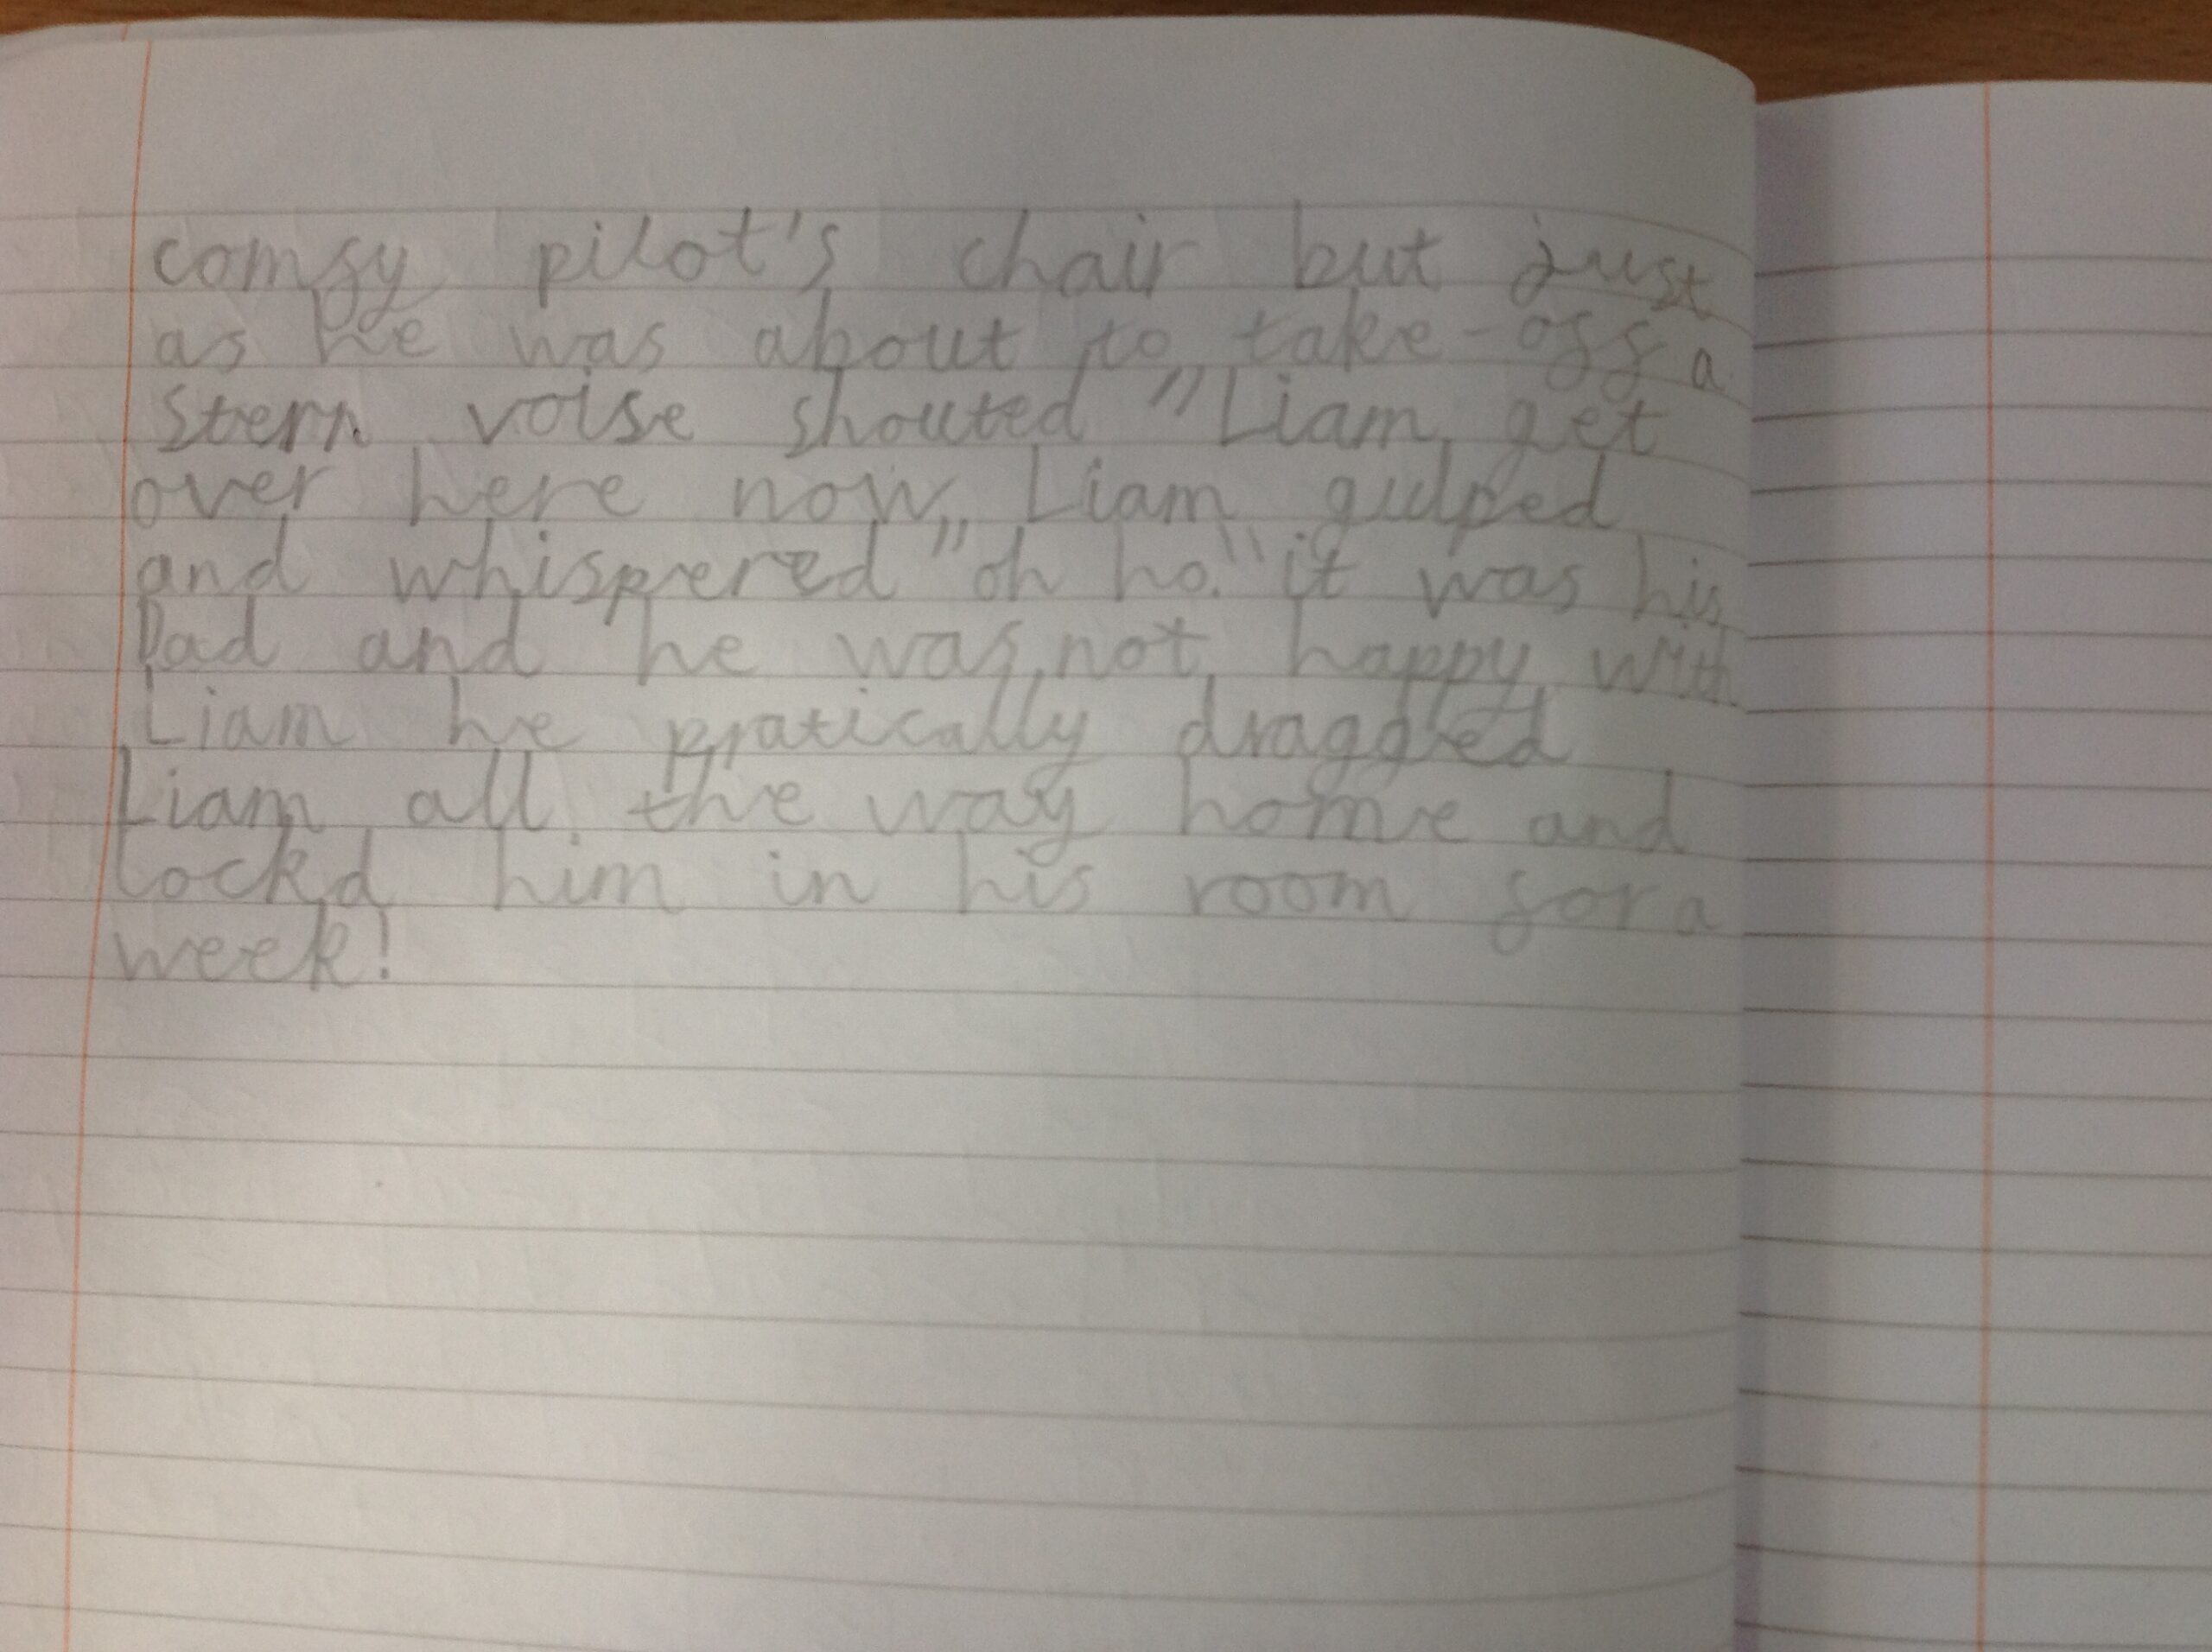 comfy pilot's chair but just
as he was about to take-off a
stern voise shouted "Liam get
over here now" Liam gulped
and whispered "oh ho." it was his
Dad and he was not happy with
Liam he pratically dragged
Liam all the way home and
lockd him in his room for a
week!